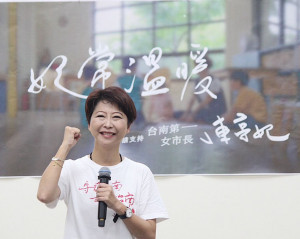 妃常溫暖
請支持
台南第一
女市長
陳亭妃